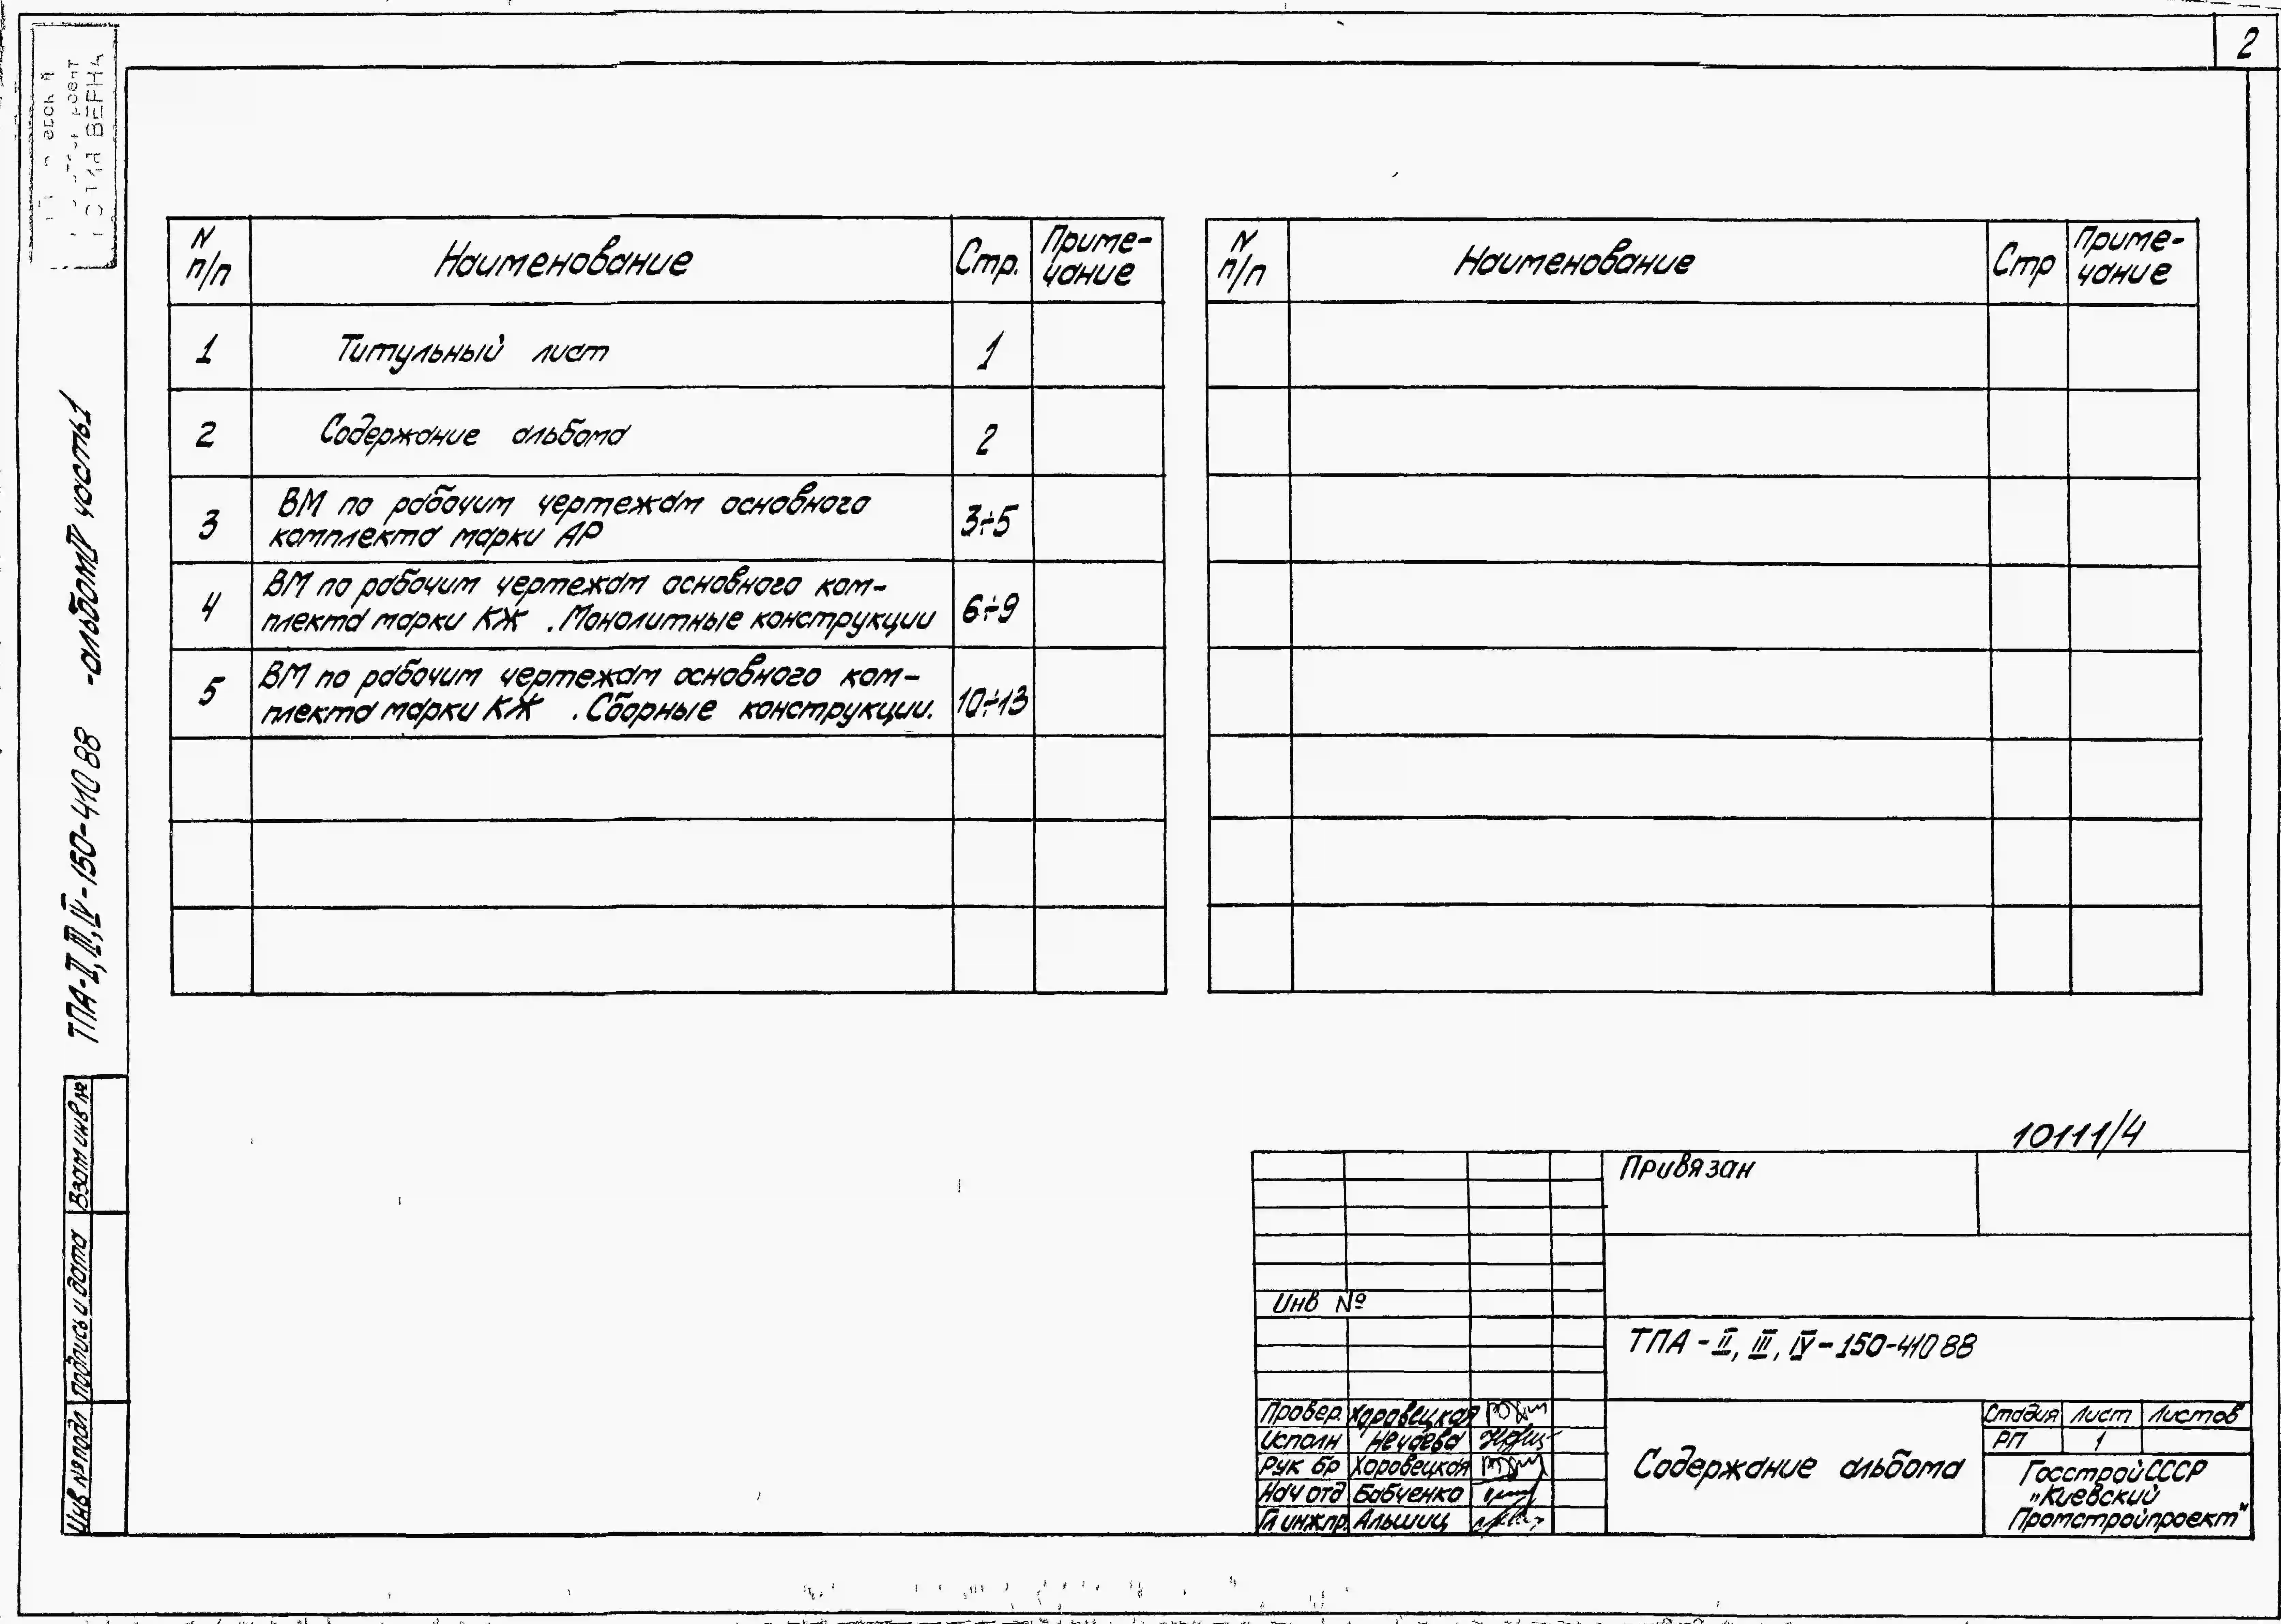 2
КОПИЯ ВЕРНА
ТПА-II, III, IV-150-410 88 -альбом IV часть 1
N п/п Наименование Стр. Приме-
чание
1 Титульный лист 1
2 Содержание альбома 2
3 ВМ по рабочим чертежам основного
комплекта марки АР 3÷5
4 ВМ по рабочим чертежам основного ком-
плекта марки КЖ . Монолитные конструкции 6÷9
5 ВМ по рабочим чертежам основного ком-
плекта марки КЖ . Сборные конструкции. 10÷13
N п/п Наименование Стр Приме-
чание
Взам инв №
Подпись и дата
Инв № подл
10111/4
Привязан
Инв №
ТПА - II, III, IV - 150-410 88
Провер. Хоровецкая
Исполн Нечаева
Рук бр Хоровецкая
Нач отд Бабченко
Гл инж пр. Альшиц
Содержание альбома
Стадия Лист Листов
РП 1
Госстрой СССР
„Киевский
Промстройпроект"